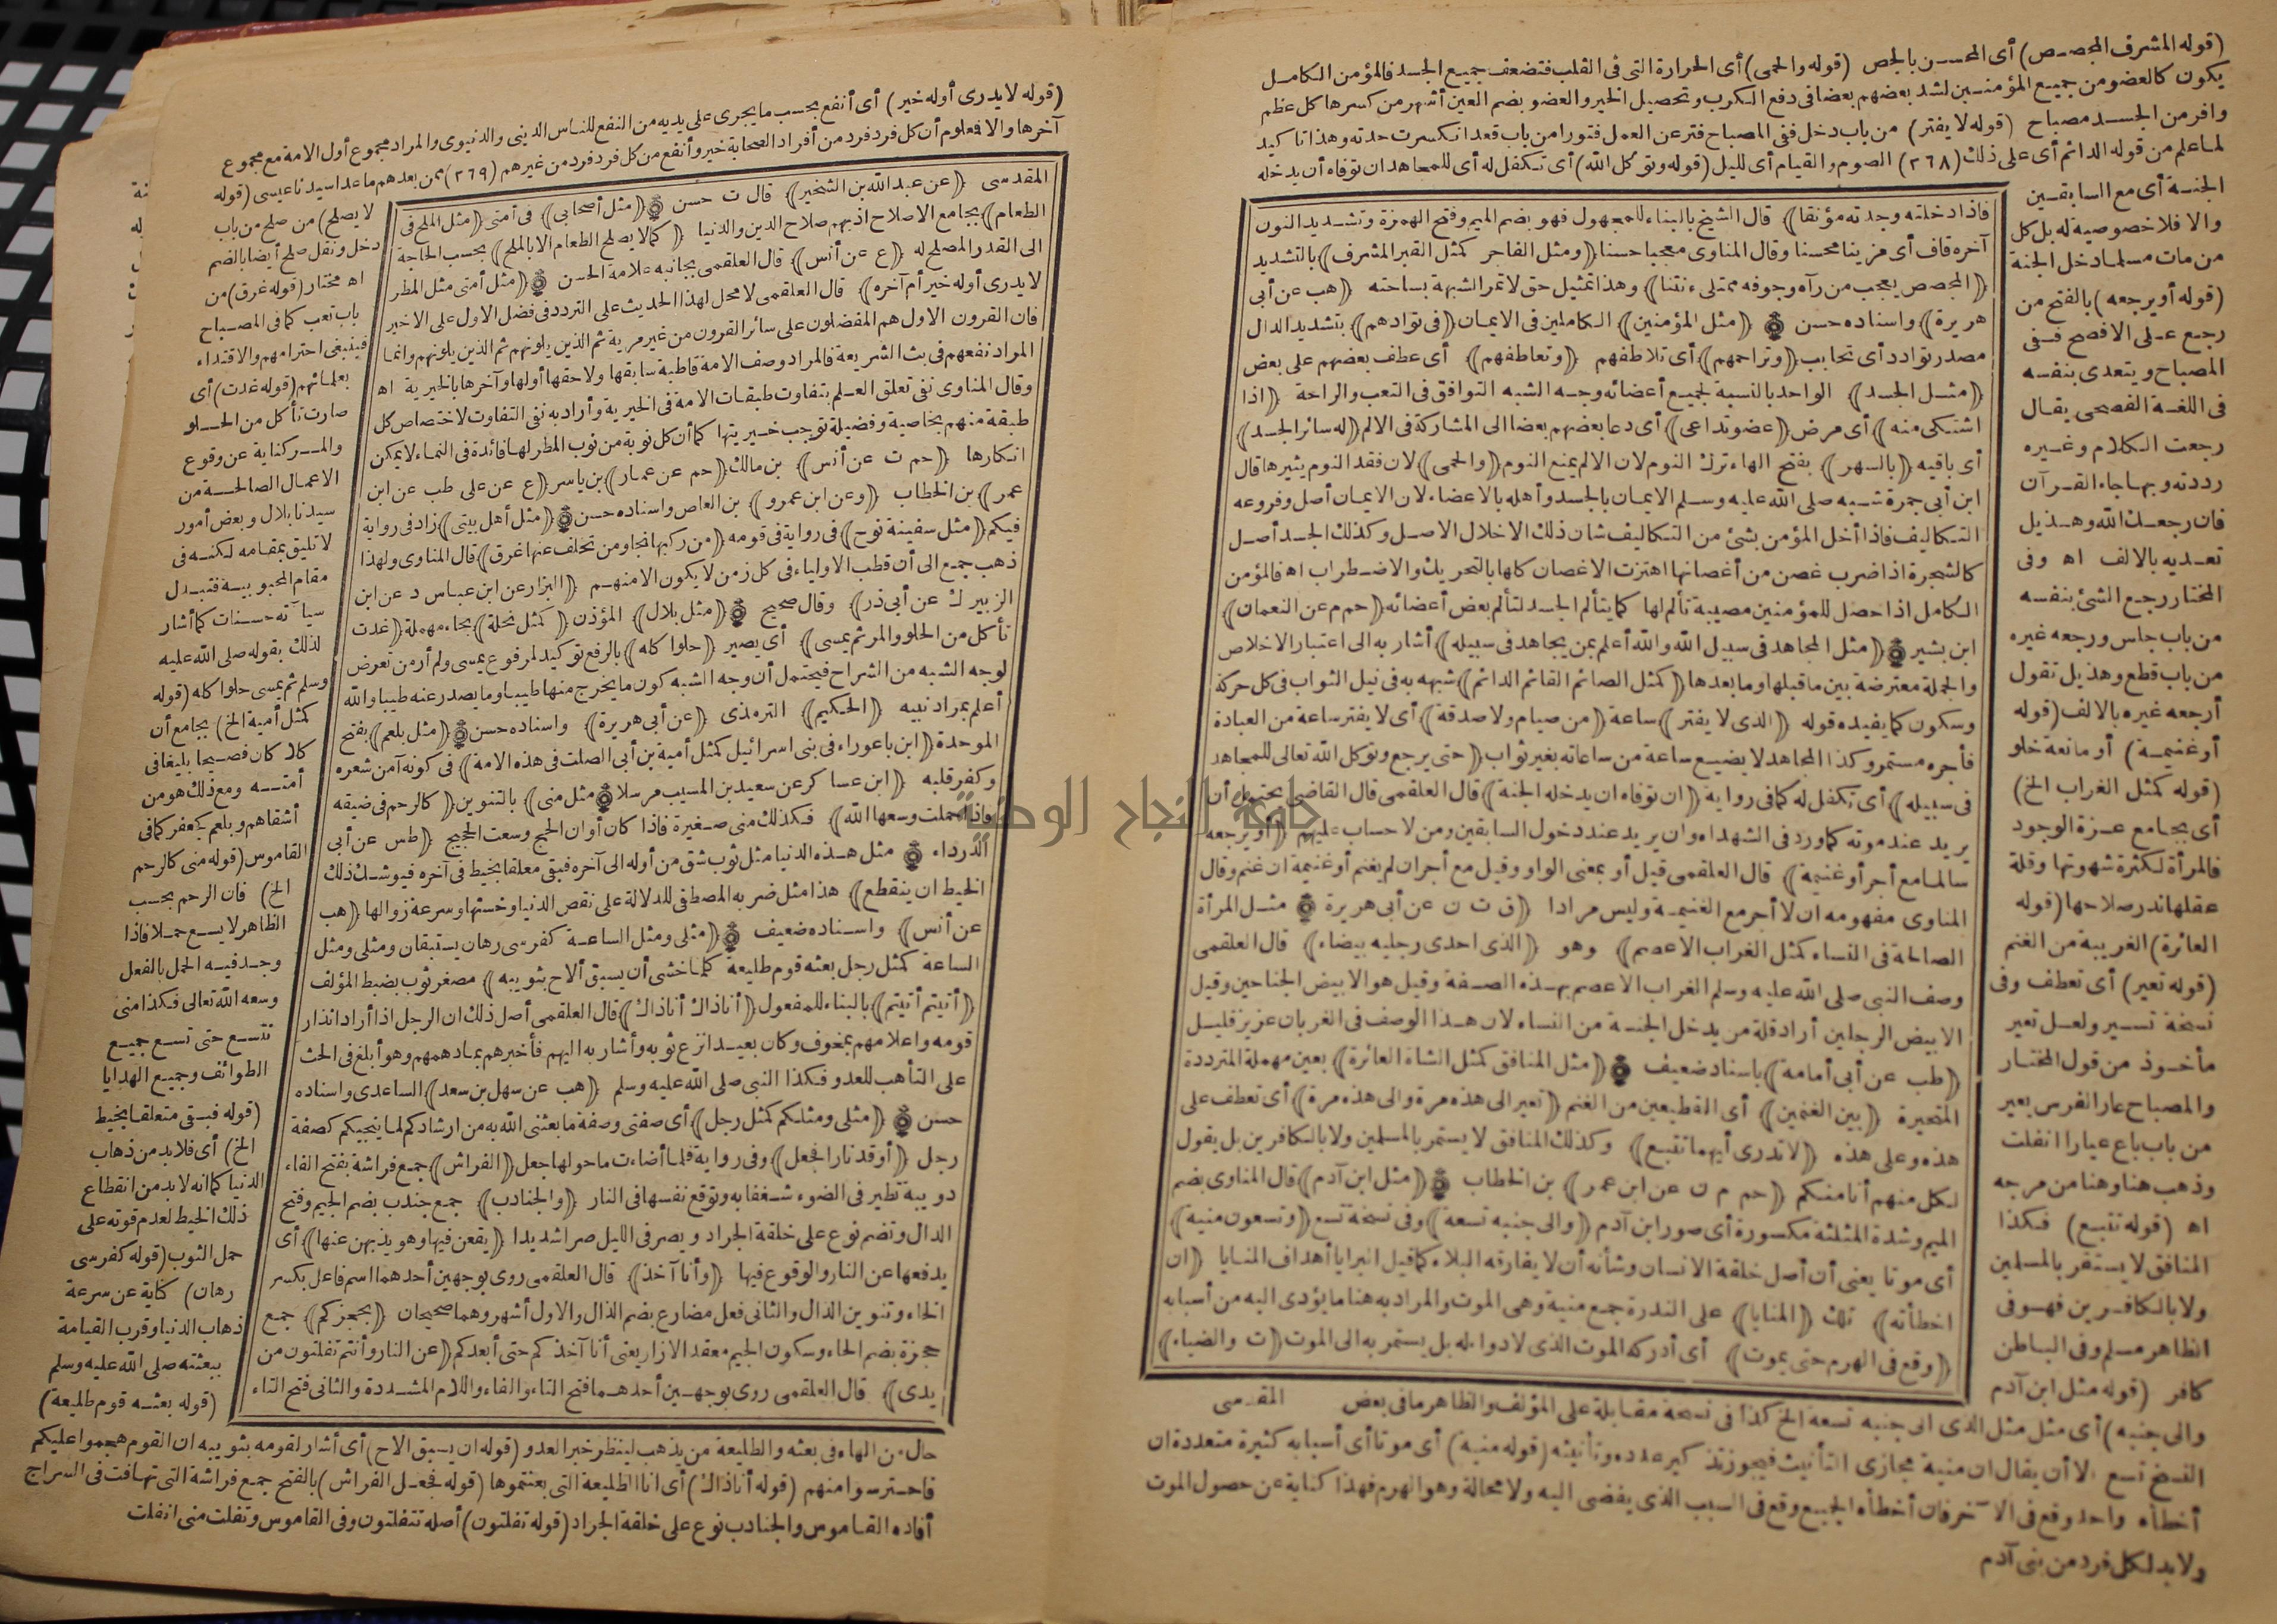 (قوله المشرف المجصص) أى المحسن بالجص (قوله والحمى) أى الحرارة التى فى القلب فتضعف جميع الجسد فالمؤمن الكامل
يكون كالعضو من جميع المؤمنين لشد بعضهم بعضا فى دفع الكرب وتحصيل الخير والعضو بضم العين أشهر من كسرها كل عظم
وافر من الجسد مصباح (قوله لا يفتر) من باب دخل ففى المصباح فتر عن العمل فتورا من باب قعد انكسرت حدته وهذا تاكيد
لما علم من قوله الدائم أى على ذلك (٢٦٨) الصوم والقيام أى لليل (قوله وتوكل الله) أى تكفل له أى للمجاهد ان توفاه أن يدخله
الجنة أى مع السابقين
والا فلا خصوصية له بل كل
من مات مسلما دخل الجنة
(قوله أو يرجعه) بالفتح من
رجع على الافصح ففى
المصباح ويتعدى بنفسه
فى اللغة الفصحى يقال
رجعت الكلام وغيره
رددته وبها جاء القرآن
فان رجعك الله وهذيل
تعديه بالالف اه وفى
المختار رجع الشئ بنفسه
من باب جلس ورجعه غيره
من باب قطع وهذيل تقول
أرجعه غيره بالالف (قوله
أو غنيمة) أو مانعة خلو
(قوله كمثل الغراب الخ)
أى بجامع عزة الوجود
فالمرأة لكثرة شهوتها وقلة
عقلها ندر صلاحها (قوله
العائرة) الغريبة من الغنم
(قوله تعير) أى تعطف وفى
نسخة تسير ولعل تعير
مأخوذ من قول المختار
والمصباح عار الفرس يعير
من باب باع عيارا انفلت
وذهب هنا وهنا من مرحه
اه (قوله تتبع) فكذا
المنافق لا يستقر بالمسلمين
ولا بالكافرين فهو فى
الظاهر مسلم وفى الباطن
كافر (قوله مثل ابن آدم
فاذا دخلته وجدته مؤنقا) قال الشيخ بالبناء للمجهول فهو بضم الميم وفتح الهمزة وتشديد النون
آخره قاف أى مزينا محسنا وقال المناوى معجبا حسنا (ومثل الفاجر كمثل القبر المشرف) بالتشديد
(المجصص يعجب من رآه وجوفه ممتلىء نتنا) وهذا تمثيل حق لا تمر الشبهة بساحته (هب عن أبى
هريرة) واسناده حسن (مثل المؤمنين) الكاملين فى الايمان (فى توادهم) بتشديد الدال
مصدر توادد أى تحابب (وتراحمهم) أى تلاطفهم (وتعاطفهم) أى عطف بعضهم على بعض
(مثل الجسد) الواحد بالنسبة لجميع أعضائه وجه الشبه التوافق فى التعب والراحة (اذا
اشتكى منه) أى مرض (عضو تداعى) أى دعا بعضهم بعضا الى المشاركة فى الالم (له سائر الجسد)
أى باقيه (بالسهر) بفتح الهاء ترك النوم لان الالم يمنع النوم (والحمى) لان فقد النوم يثيرها قال
ابن أبى جمرة شبه صلى الله عليه وسلم الايمان بالجسد وأهله بالاعضاء لان الايمان أصل وفروعه
التكاليف فاذا أخل المؤمن بشئ من التكاليف شان ذلك الاخلال الاصل وكذلك الجسد أصل
كالشجرة اذا ضرب غصن من أغصانها اهتزت الاغصان كلها بالتحريك والاضطراب اه فالمؤمن
الكامل اذا حصل للمؤمنين مصيبة تألم لها كما يتألم الجسد لتألم بعض أعضائه (حم م عن النعمان)
ابن بشير (مثل المجاهد فى سبيل الله والله أعلم بمن يجاهد فى سبيله) أشار به الى اعتبار الاخلاص
والجملة معترضة بين ما قبلها وما بعدها (كمثل الصائم القائم الدائم) شبهه به فى نيل الثواب فى كل حركة
وسكون كما يفيده قوله (الذى لا يفتر) ساعة (من صيام ولا صدقة) أى لا يفتر ساعة من العبادة
فأجره مستمر وكذا المجاهد لا يضيع ساعة من ساعاته بغير ثواب (حتى يرجع وتوكل الله تعالى للمجاهد
فى سبيله) أى تكفل له كما فى رواية (ان توفاه ان يدخله الجنة) قال العلقمى قال القاضى يحتمل أن
يريد عند موته كما ورد فى الشهداء وان يريد عند دخول السابقين ومن لا حساب عليهم (أو يرجعه
سالما مع أجر أو غنيمة) قال العلقمى قيل أو بمعنى الواو وقيل مع أجر ان لم يغنم أو غنيمة ان غنم وقال
المناوى مفهومه ان لا أجر مع الغنيمة وليس مرادا (ق ت ن عن أبى هريرة مثل المرأة
الصالحة فى النساء كمثل الغراب الاعصم) وهو (الذى احدى رجليه بيضاء) قال العلقمى
وصف النبى صلى الله عليه وسلم الغراب الاعصم بهذه الصفة وقيل هو الابيض الجناحين وقيل
الابيض الرجلين أراد قلة من يدخل الجنة من النساء لان هذا الوصف فى الغربان عزيز قليل
(طب عن أبى أمامة) باسناد ضعيف (مثل المنافق كمثل الشاة العائرة) بعين مهملة المترددة
المتحيرة (بين الغنمين) أى القطيعين من الغنم (تعير الى هذه مرة والى هذه مرة) أى تعطف على
هذه وعلى هذه (لا تدرى أيهما تتبع) وكذلك المنافق لا يستمر بالمسلمين ولا بالكافرين بل يقول
لكل منهم أنا منكم (حم م ن عن ابن عمر) بن الخطاب (مثل ابن آدم) قال المناوى بضم
الميم وشدة المثلثة مكسورة أى صور ابن آدم (والى جنبه تسعة) وفى نسخة تسع (وتسعون منية)
أى موتا يعنى أن أصل خلقة الانسان وشأنه أن لا يفارقه البلاء كما قيل البرايا أهداف المنايا (ان
اخطأته) تلك (المنايا) على الندرة جمع منية وهى الموت والمراد به هنا ما يؤدى اليه من أسبابه
(وقع فى الهرم حتى يموت) أى أدركه الموت الذى لا دواء له بل يستمر به الى الموت (ت والضياء)
المقدسى
والى جنبه) أى مثل مثل الذى الى جنبه تسعة الخ كذا فى نسخة مقابلة على المؤلف والظاهر ما فى بعض
النسخ تسع الا أن يقال ان منية مجازى التأنيث فيجوز تذكير عدده وتأنيثه (قوله منية) أى موتا أى أسبابه كثيرة متعددة ان
أخطأه واحد وقع فى الآخر فان أخطأه الجميع وقع فى السبب الذى يفضى اليه ولا محالة وهو الهرم فهذا كناية عن حصول الموت
ولا بد لكل فرد من بنى آدم
(قوله لا يدرى أوله خير) أى أنفع بحسب ما يجرى على يديه من النفع للناس الدينى والدنيوى والمراد مجموع أول الامة مع مجموع
آخرها والا فعلوم أن كل فرد فرد من أفراد الصحابة خير وأنفع من كل فرد فرد من غيرهم (٢٦٩) ممن بعدهم ما عدا سيدنا عيسى (قوله
لا يصلح) من صلح من باب
دخل ونقل صلح أيضا بالضم
اه مختار (قوله غرق) من
باب تعب كما فى المصباح
فينبغى احترامهم والاقتداء
بعلمائهم (قوله غدت) أى
صارت تأكل من الحلو
والمر كناية عن وقوع
الاعمال الصالحة من
سيدنا بلال وبعض أمور
لا تليق بمقامه لكنه فى
مقام المحبوبية فتبدل
سيآته حسنات كما أشار
لذلك بقوله صلى الله عليه
وسلم ثم يمسى حلوا كله (قوله
كمثل أمية الخ) بجامع أن
كلا كان فصيحا بليغا فى
أمته ومع ذلك هو من
أشقاهم وبلعم كجعفر كما فى
القاموس (قوله منى كالرحم
الخ) فان الرحم بحسب
الظاهر لا يسع حملا فاذا
وجد فيه الحمل بالفعل
وسعه الله تعالى فكذا منى
تتسع حتى تسع جميع
الطوائف وجميع الهدايا
(قوله فبقى متعلقا بخيط
الخ) أى فلا بد من ذهاب
الدنيا كما انه لا بد من انقطاع
ذلك الخيط لعدم قوته على
حمل الثوب (قوله كفرسى
رهان) كناية عن سرعة
ذهاب الدنيا وقرب القيامة
ببعثته صلى الله عليه وسلم
(قوله بعثه قوم طليعة)
المقدسى (عن عبد الله بن الشخير) قال ت حسن (مثل أصحابى) فى أمتى (مثل الملح فى
الطعام) بجامع الاصلاح اذ بهم صلاح الدين والدنيا (كما لا يصلح الطعام الا بالملح) بحسب الحاجة
الى القدر المصلح له (ع عن أنس) قال العلقمى بجانبه علامة الحسن (مثل أمتى مثل المطر
لا يدرى أوله خير أم آخره) قال العلقمى لا محل لهذا الحديث على التردد فى فضل الاول على الاخير
فان القرون الاول هم المفضلون على سائر القرون من غير مرية ثم الذين يلونهم ثم الذين يلونهم وانما
المراد نفعهم فى بث الشريعة فالمراد وصف الامة قاطبة سابقها ولاحقها أولها وآخرها بالخيرية اه
وقال المناوى نفى تعلق العلم بتفاوت طبقات الامة فى الخيرية وأراد به نفى التفاوت لاختصاص كل
طبقة منهم بخاصية وفضيلة توجب خيريتها كما أن كل نوبة من نوب المطر لها فائدة فى النماء لا يمكن
انكارها (حم ت عن أنس) بن مالك (حم عن عمار) بن ياسر (ع عن على طب عن ابن
عمر) بن الخطاب (وعن ابن عمرو) بن العاص واسناده حسن (مثل أهل بيتى) زاد فى رواية
فيكم (مثل سفينة نوح) فى رواية فى قومه (من ركبها نجا ومن تخلف عنها غرق) قال المناوى ولهذا
ذهب جمع الى أن قطب الاولياء فى كل زمن لا يكون الا منهم (البزار عن ابن عباس د عن ابن
الزبير ك عن أبى ذر) وقال صحيح (مثل بلال) المؤذن (كمثل نحلة) بحاء مهملة (غدت
تأكل من الحلو والمر ثم يمسى) أى يصير (حلوا كله) بالرفع توكيد لمرفوع يمسى ولم أر من تعرض
لوجه الشبه من الشراح فيحتمل أن وجه الشبه كون ما يخرج منها طيبا وما يصدر عنه طيبا والله
أعلم بمراد نبيه (الحكيم) الترمذى (عن أبى هريرة) واسناده حسن (مثل بلعم) بفتح
الموحدة (ابن باعوراء فى بنى اسرائيل كمثل أمية بن أبى الصلت فى هذه الامة) فى كونه آمن شعره
وكفر قلبه (ابن عساكر عن سعيد بن المسيب مرسلا مثل منى) بالتنوين (كالرحم فى ضيقه
فاذا حملت وسعها الله) فكذلك منى صغيرة فاذا كان أوان الحج وسعت الحجيج (طس عن أبى
الدرداء مثل هذه الدنيا مثل ثوب شق من أوله الى آخره فبقى معلقا بخيط فى آخره فيوشك ذلك
الخيط ان ينقطع) هذا مثل ضربه المصطفى للدلالة على نقص الدنيا وخستها وسرعة زوالها (هب
عن أنس) واسناده ضعيف (مثلى ومثل الساعة كفرسى رهان يستبقان ومثلى ومثل
الساعة كمثل رجل بعثه قوم طليعة فلما خشى أن يسبق ألاح بثوبيه) مصغر ثوب بضبط المؤلف
(أتيتم أتيتم) بالبناء للمفعول (أنا ذاك أنا ذاك) قال العلقمى أصل ذلك ان الرجل اذا أراد انذار
قومه واعلامهم بمخوف وكان بعيدا نزع ثوبه وأشار به اليهم فأخبرهم بما دهمهم وهو أبلغ فى الحث
على التأهب للعدو فكذا النبى صلى الله عليه وسلم (هب عن سهل بن سعد) الساعدى واسناده
حسن (مثلى ومثلكم كمثل رجل) أى صفتى وصفة ما بعثنى الله به من ارشادكم لما ينجيكم كصفة
رجل (أوقد نارا فجعل) وفى رواية فلما أضاءت ما حولها جعل (الفراش) جمع فراشة بفتح الفاء
دويبة تطير فى الضوء شغفا به وتوقع نفسها فى النار (والجنادب) جمع جندب بضم الجيم وفتح
الدال وتضم نوع على خلقة الجراد ويصر فى الليل صرا شديدا (يقعن فيها وهو يذبهن عنها) أى
يدفعها عن النار والوقوع فيها (وأنا آخذ) قال العلقمى روى بوجهين أحدهما اسم فاعل بكسر
الخاء وتنوين الذال والثانى فعل مضارع بضم الذال والاول أشهر وهما صحيحان (بحجزكم) جمع
حجزة بضم الحاء وسكون الجيم معقد الازار يعنى أنا آخذكم حتى أبعدكم (عن النار وأنتم تفلتون من
يدى) قال العلقمى روى بوجهين أحدهما فتح التاء والفاء واللام المشددة والثانى فتح التاء
حال من الهاء فى بعثه والطليعة من يذهب لينظر خبر العدو (قوله ان يسبق الاح) أى أشار لقومه بثوبيه ان القوم هجموا عليكم
فاحترسوا منهم (قوله أنا ذاك) أى انا الطليعة التى بعثتموها (قوله فجعل الفراش) بالفتح جمع فراشة التى تهافت فى السراج
أفاده القاموس والجنادب نوع على خلقة الجراد (قوله تفلتون) أصله تتفلتون وفى القاموس وتفلت منى انفلت
جامعة النجاح الوطنية